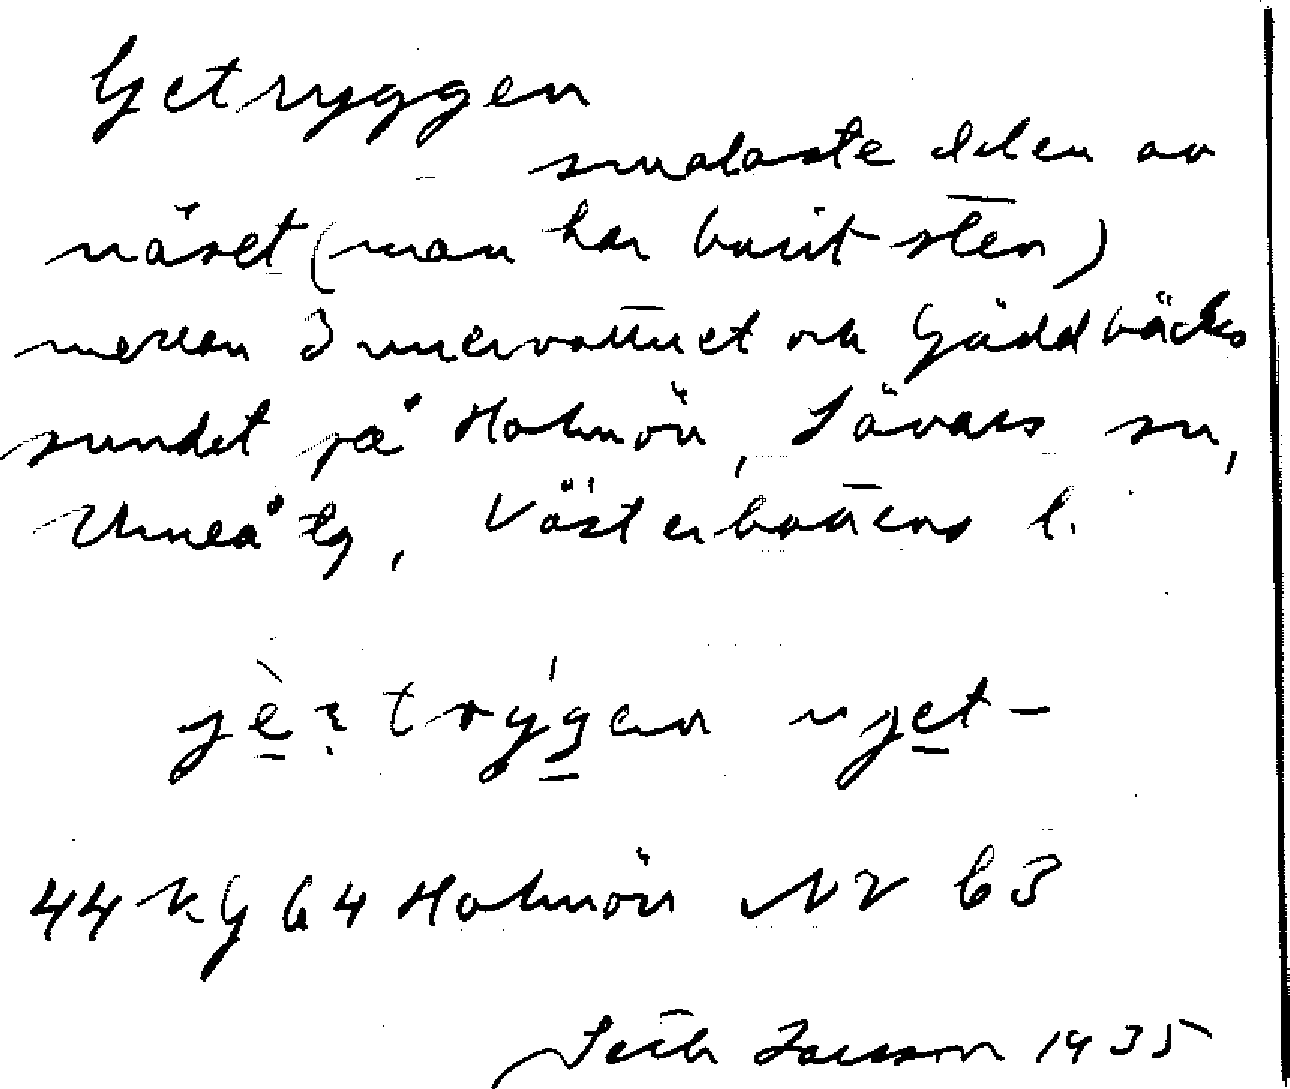 Getryggen
smalaste delen av
näset (man har burit sten)
mellan Innervattnet och Gäddbäcks
sundet på Holmön, Sävars sn,
Umeå tg, Västerbottens l.
44 Kg 64 Holmön NV b3
1935